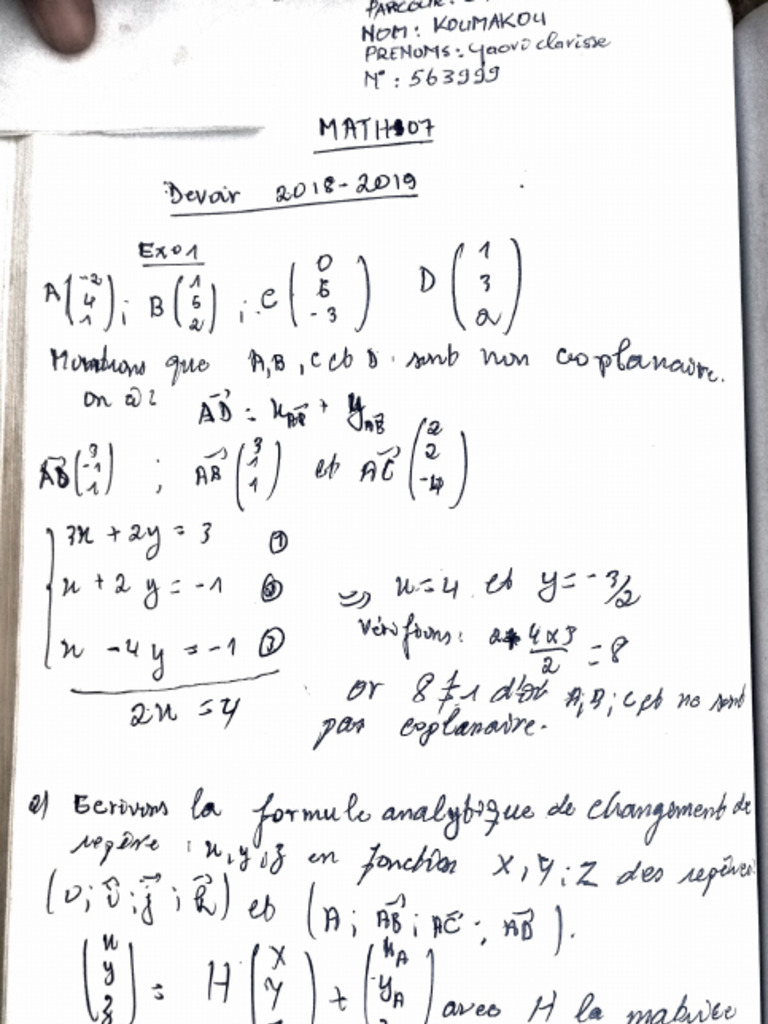 PARCOUR:
NOM: KOUMAKOU
PRENOMS: Yaovi clarisse
N°: 563999
MATH107
Devoir 2018-2019
Exo1
A(-2 4 1); B(1 5 2); C(0 6 -3) D(1 3 2)
Montrons que A, B, C et D sont non coplanaire.
on a: AD = xAB + yAC
AD(3 -1 1); AB(3 1 1) et AC(2 2 -4)
3x + 2y = 3 ①
x + 2y = -1 ② => x=4 et y=-3/2
x - 4y = -1 ③ Vérifions: 4x3/2 = 8
2x = 4 or 8 ≠ 1 d'où A, B, C et no sont
pas coplanaire.
2) Ecrivons la formule analytique de changement de
repère: x, y, z en fonction X, Y, Z des repères
(O; i; j; k) et (A; AB; AC; AD).
(x y z) = H(X Y) + (xA yA) avec H la matrice